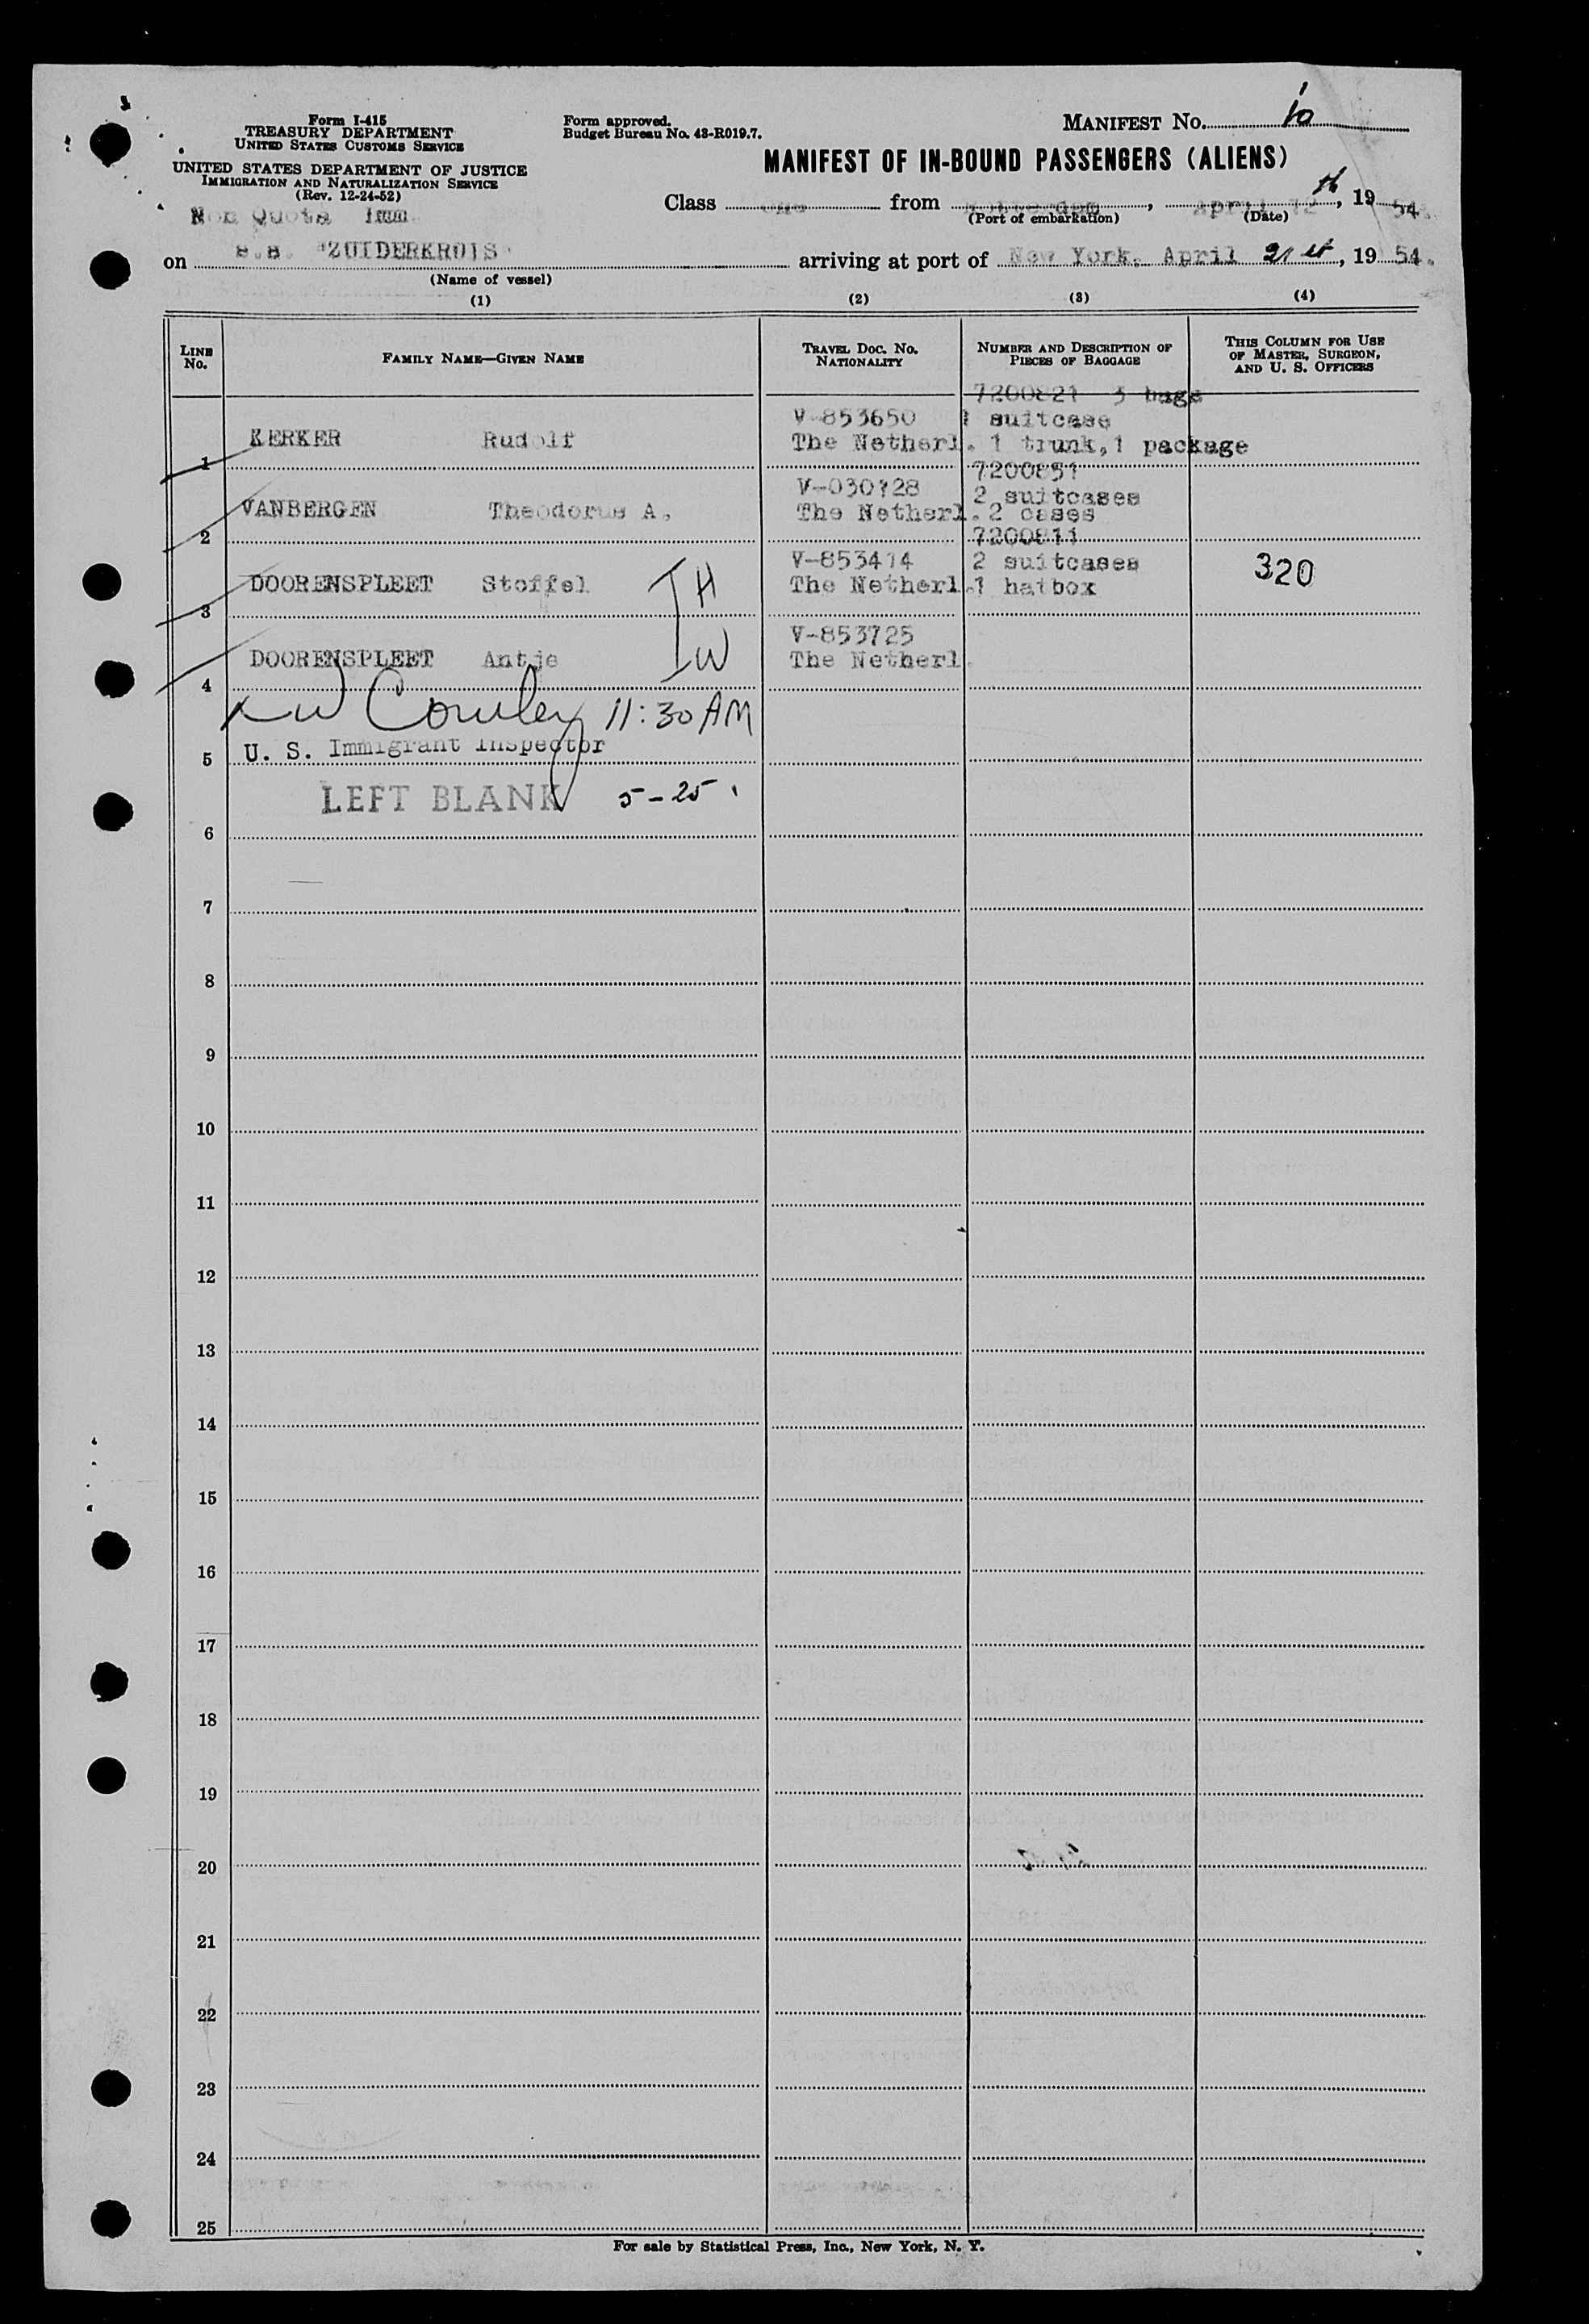 Form I-415
TREASURY DEPARTMENT
UNITED STATES CUSTOMS SERVICE
UNITED STATES DEPARTMENT OF JUSTICE
IMMIGRATION AND NATURALIZATION SERVICE
(Rev. 12-24-52)
Form approved.
Budget Bureau No. 43-R019.7.
MANIFEST No. 10
MANIFEST OF IN-BOUND PASSENGERS (ALIENS)
Non Quota Imm.
Class One from Rotterdam, April 12th, 1954.
(Port of embarkation) (Date)
on s.s. "ZUIDERKRUIS" arriving at port of New York, April 21st, 1954.
(Name of vessel)
(1) (2) (3) (4)
LINE No. FAMILY NAME—GIVEN NAME TRAVEL DOC. No. NATIONALITY NUMBER AND DESCRIPTION OF PIECES OF BAGGAGE THIS COLUMN FOR USE OF MASTER, SURGEON, AND U. S. OFFICERS
7200821 3 bags
V-853650 1 suitcase
1 KERKER Rudolf The Netherl. 1 trunk, 1 package
7200851
V-030728 2 suitcases
2 VANBERGEN Theodorus A. The Netherl. 2 cases
7200811
V-853414 2 suitcases 320
3 DOORENSPLEET Stoffel H The Netherl. 1 hatbox
V-853725
4 DOORENSPLEET Antje W The Netherl.
Cowley 11:30 AM
5 U. S. Immigrant Inspector
LEFT BLANK 5-25
6
7
8
9
10
11
12
13
14
15
16
17
18
19
20
21
22
23
24
25
For sale by Statistical Press, Inc., New York, N. Y.